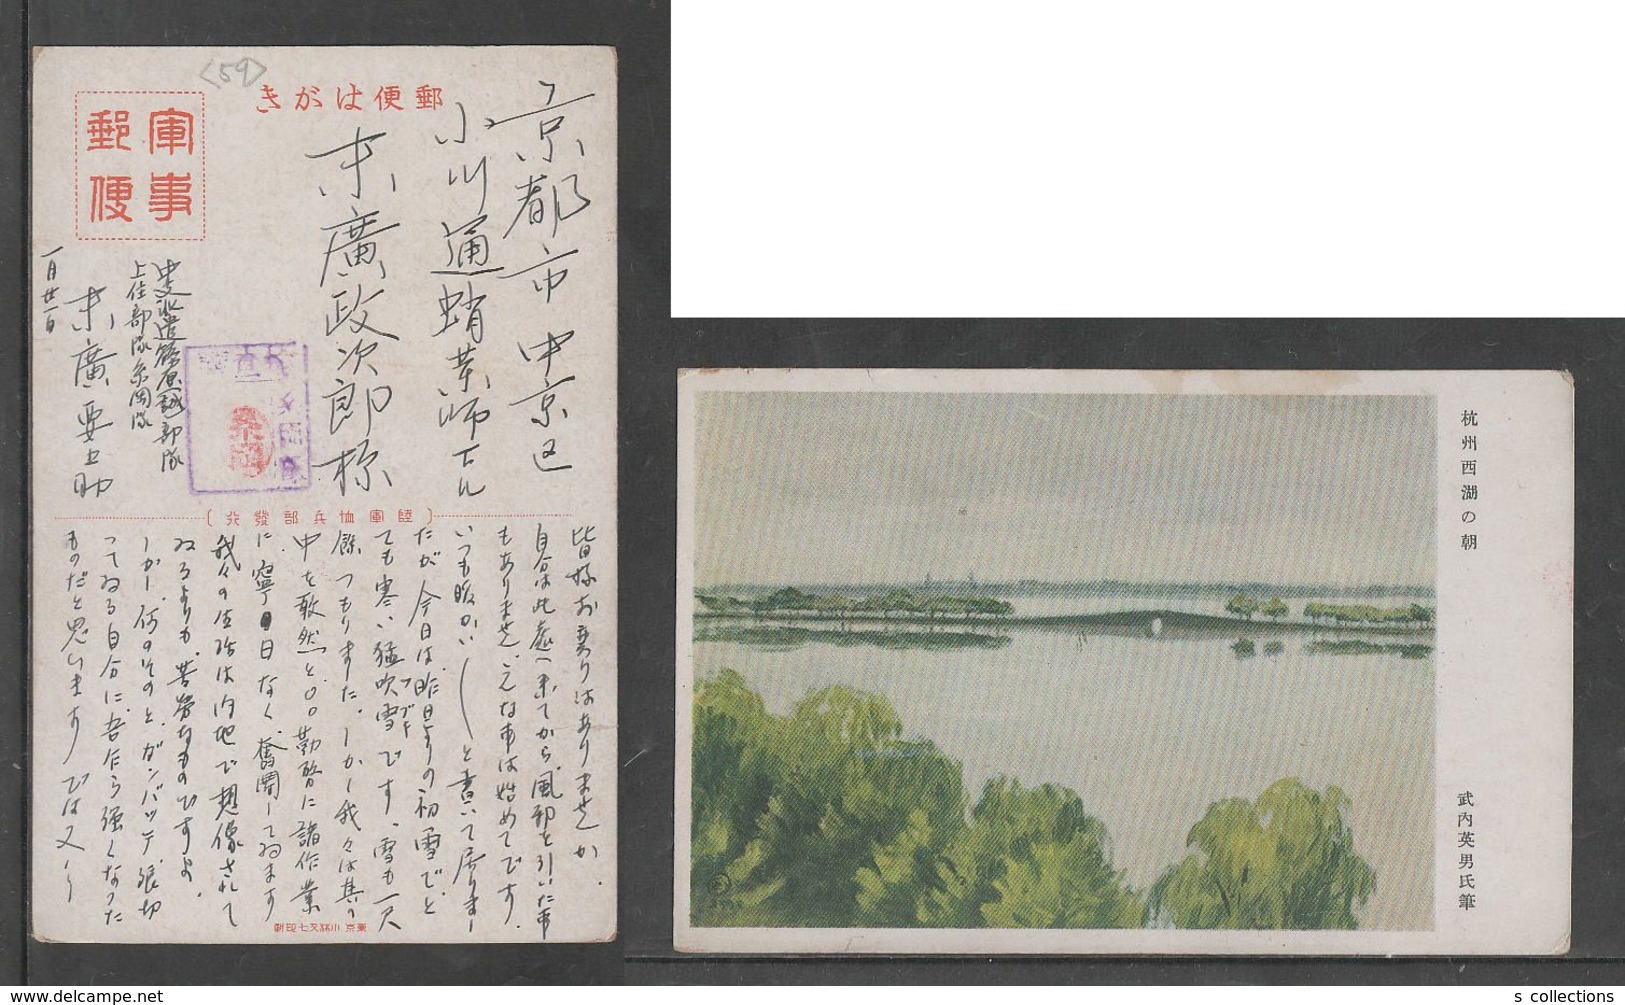 <59>
郵便はがき
軍事
郵便
京都市中京区
小川通蛸薬師下ル
末廣政次郎様
中支派遣篠原誠部隊
上住部隊糸岡隊
末廣要之助
一月廿一日
陸軍恤兵部發行
皆様お変りはありませんか。
自分は此處へ来てから風邪を引いた事
もありません。こんな事は始めてです。
いつも暖かい〱と書いて居りまし
たが今日は昨日よりの初雪でと
ても寒い猛吹雪です。雪も一尺
フブキ
餘つもりました。しかし我々は其の
中を敢然と〇〇勤務に諸作業
に寧日なく奮闘してゐます
我々の生活は内地で想像されて
ゐるよりも苦労なものですよ。
しかし何のそのとガンバッテ張切
ってゐる自分に、吾乍ら強くなった
ものだと思います。では又〱
東京 小林又七印刷
杭州西湖の朝
武内英男氏筆
s collections